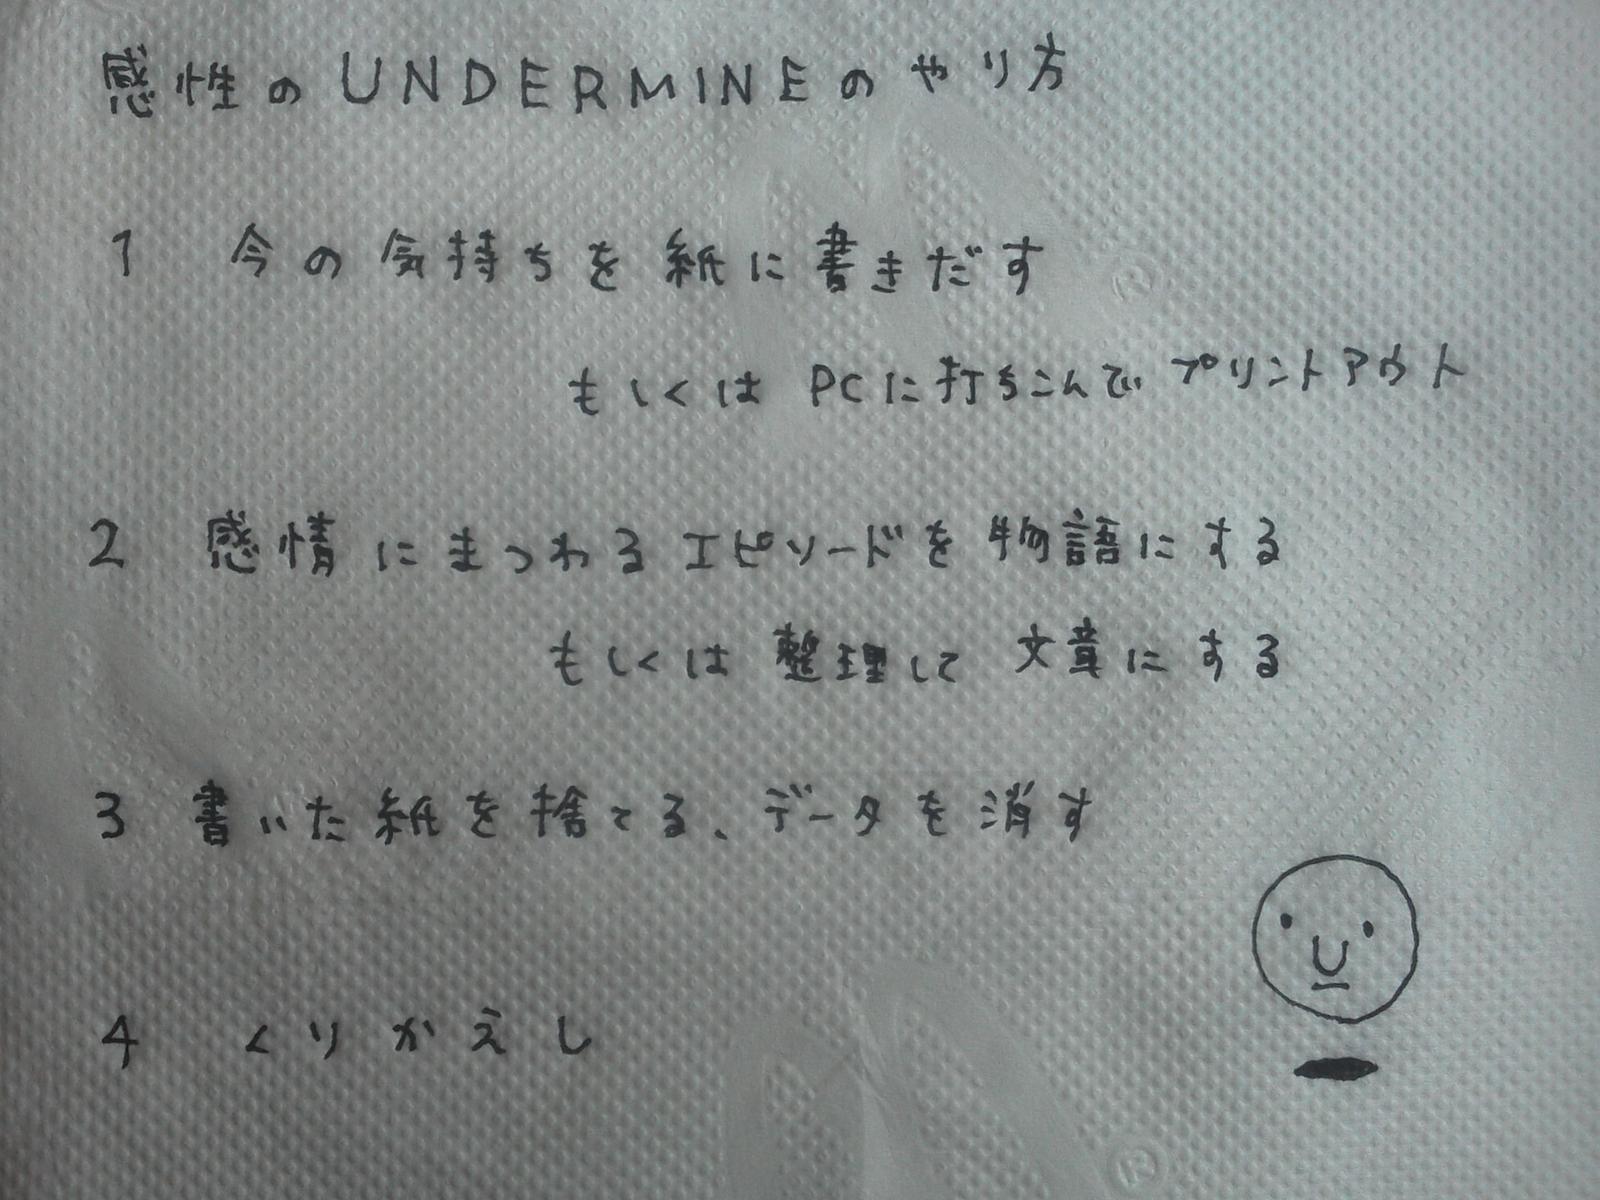 感性のUNDERMINEのやり方
1 今の気持ちを紙に書きだす
もしくは PCに打ちこんでプリントアウト
2 感情にまつわるエピソードを物語にする
もしくは整理して文章にする
3 書いた紙を捨てる、データを消す
4 くりかえし